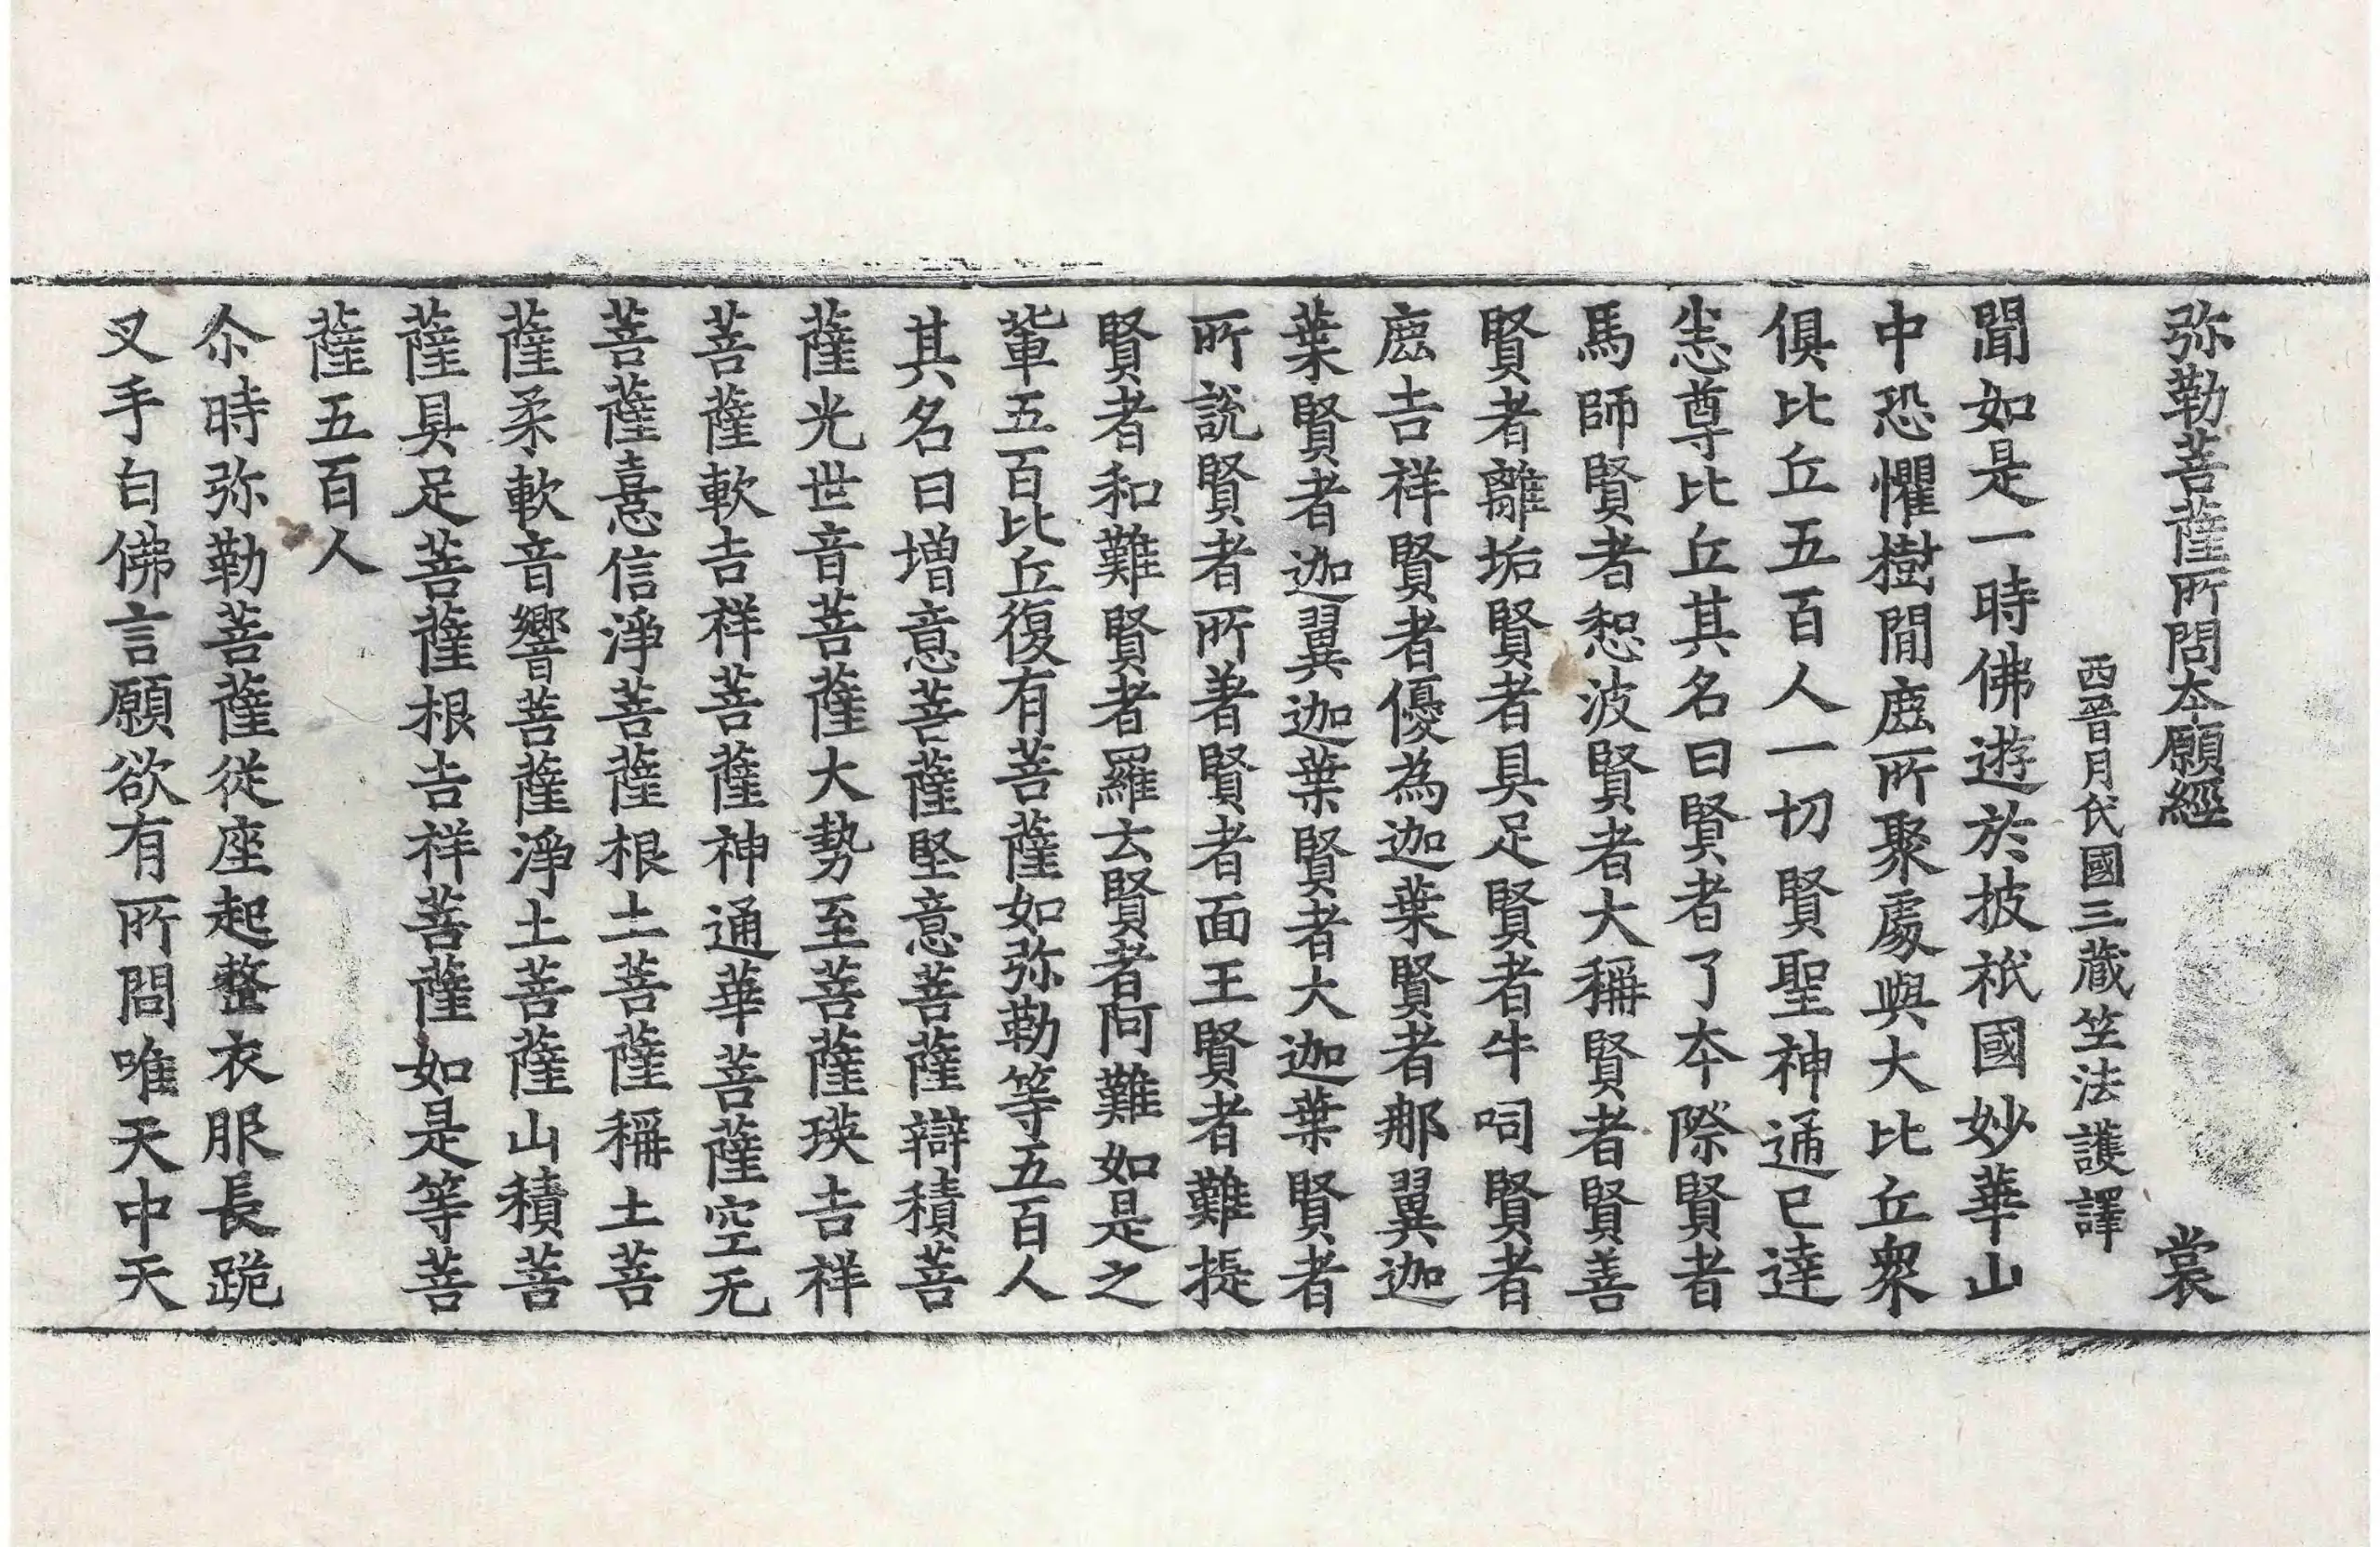 弥勒菩薩所問夲願經 裳
西晉月氏國三藏竺法護譯
聞如是一時佛遊於披祇國妙華山
中恐懼樹間鹿所聚處與大比丘衆
俱比丘五百人一切賢聖神通已達
悉尊比丘其名曰賢者了夲際賢者
馬師賢者惒波賢者大稱賢者賢善
賢者離垢賢者具足賢者牛呞賢者
鹿吉祥賢者優為迦葉賢者那翼迦
葉賢者迦翼迦葉賢者大迦葉賢者
所說賢者所著賢者面王賢者難提
賢者和難賢者羅云賢者阿難如是之
輩五百比丘復有菩薩如弥勒等五百人
其名曰增意菩薩堅意菩薩辯積菩
薩光世音菩薩大勢至菩薩瑛吉祥
菩薩軟吉祥菩薩神通華菩薩空无
菩薩憙信淨菩薩根土菩薩稱土菩
薩柔軟音響菩薩淨土菩薩山積菩
薩具足菩薩根吉祥菩薩如是等菩
薩五百人
尒時弥勒菩薩從座起整衣服長跪
叉手白佛言願欲有所問唯天中天